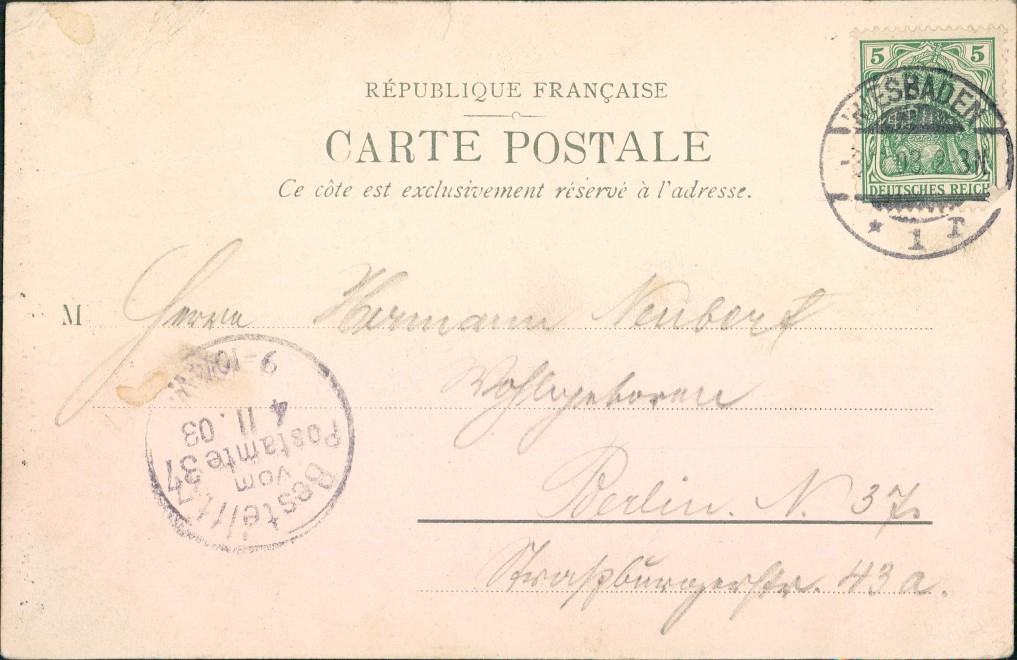 5 5
DEUTSCHES REICH
WIESBADEN
03. 2-3N
* 1 T
RÉPUBLIQUE FRANÇAISE
CARTE POSTALE
Ce côte est exclusivement réservé à l'adresse.
M Herrn Hermann Neubert
Wohlgeboren
Berlin. N. 37.
Straßburgerstr. 43 a.
Bestellt
vom
Postamte 37
4 11. 03
9-10